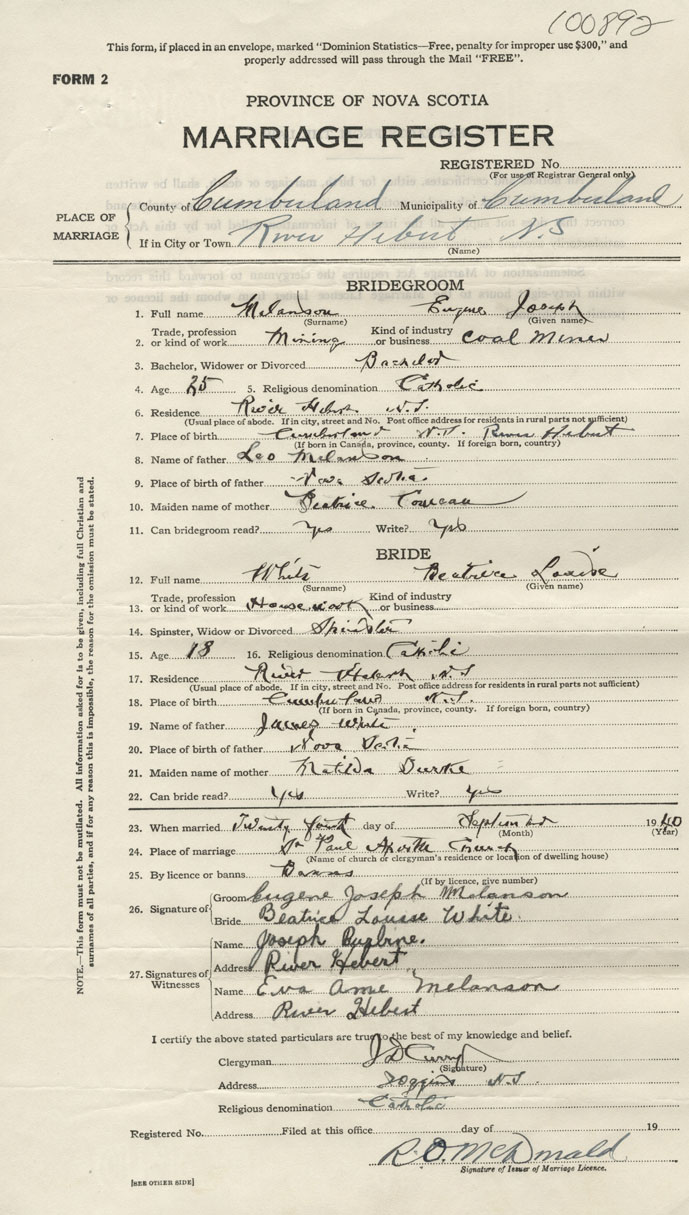 100892
This form, if placed in an envelope, marked "Dominion Statistics—Free, penalty for improper use $300," and
properly addressed will pass through the Mail "FREE".
FORM 2
PROVINCE OF NOVA SCOTIA
MARRIAGE REGISTER
REGISTERED No.
(For use of Registrar General only)
PLACE OF MARRIAGE
County of Cumberland Municipality of Cumberland
If in City or Town River Hebert N.S
(Name)
BRIDEGROOM
1. Full name Melanson Eugene Joseph
(Surname) (Given name)
2. Trade, profession or kind of work Mining Kind of industry or business Coal Mines
3. Bachelor, Widower or Divorced Bachelor
4. Age 25 5. Religious denomination Catholic
6. Residence River Hebert N.S.
(Usual place of abode. If in city, street and No. Post office address for residents in rural parts not sufficient)
7. Place of birth Cumberland N.S. River Hebert
(If born in Canada, province, county. If foreign born, country)
8. Name of father Leo Melanson
9. Place of birth of father Nova Scotia.
10. Maiden name of mother Beatrice Comeau
11. Can bridegroom read? Yes Write? Yes
BRIDE
12. Full name White Beatrice Louise
(Surname) (Given name)
13. Trade, profession or kind of work Housework Kind of industry or business
14. Spinster, Widow or Divorced Spinster
15. Age 18 16. Religious denomination Catholic
17. Residence River Hebert N.S
(Usual place of abode. If in city, street and No. Post office address for residents in rural parts not sufficient)
18. Place of birth Cumberland N.S.
(If born in Canada, province, county. If foreign born, country)
19. Name of father James White
20. Place of birth of father Nova Scotia
21. Maiden name of mother Matilda Burke
22. Can bride read? Yes Write? Yes
23. When married Twenty fourth day of September 1940
(Month) (Year)
24. Place of marriage St Paul Apostle Church
(Name of church or clergyman's residence or location of dwelling house)
25. By licence or banns Banns
(If by licence, give number)
26. Signature of
Groom Eugene Joseph Melanson
Bride Beatrice Louise White.
27. Signatures of Witnesses
Name Joseph
Address River Hebert
Name Eva Anne Melanson
Address River Hebert
I certify the above stated particulars are true to the best of my knowledge and belief.
Clergyman J D Curry
(Signature)
Address Joggins N.S.
Religious denomination Catholic
Registered No. Filed at this office day of 19
R. O. McDonald
Signature of Issuer of Marriage Licence.
[SEE OTHER SIDE]
NOTE.—This form must not be mutilated. All information asked for is to be given, including full Christian and
surnames of all parties, and if for any reason this is impossible, the reason for the omission must be stated.